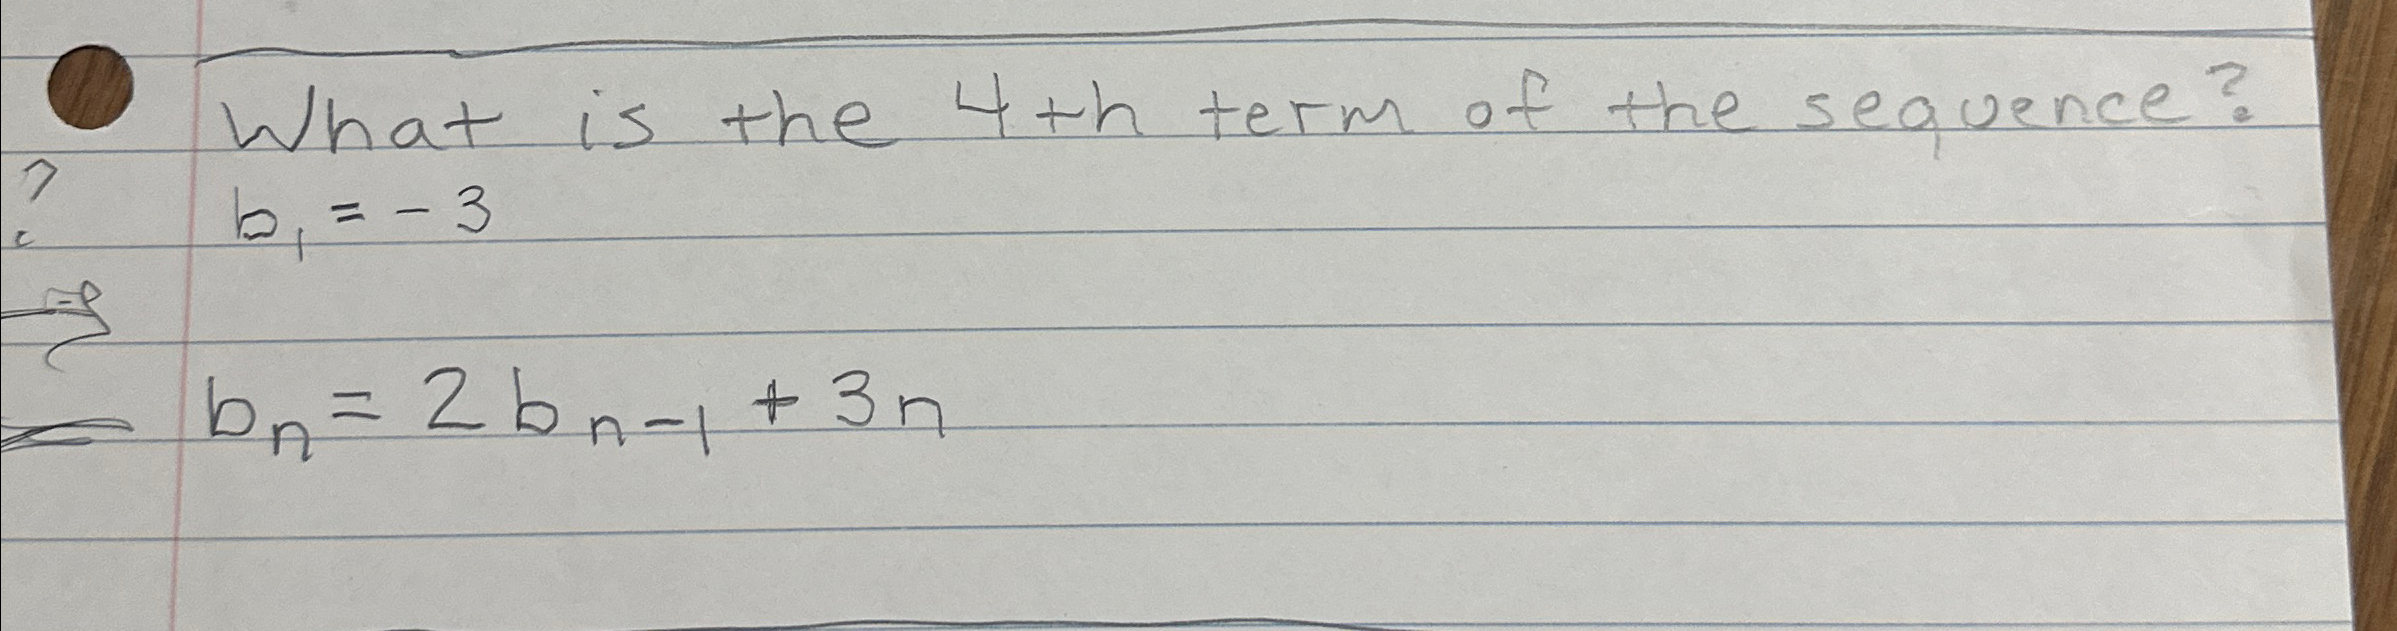 What is the 4th term of the sequence?
?
b₁ = - 3
bₙ = 2bₙ₋₁ + 3n